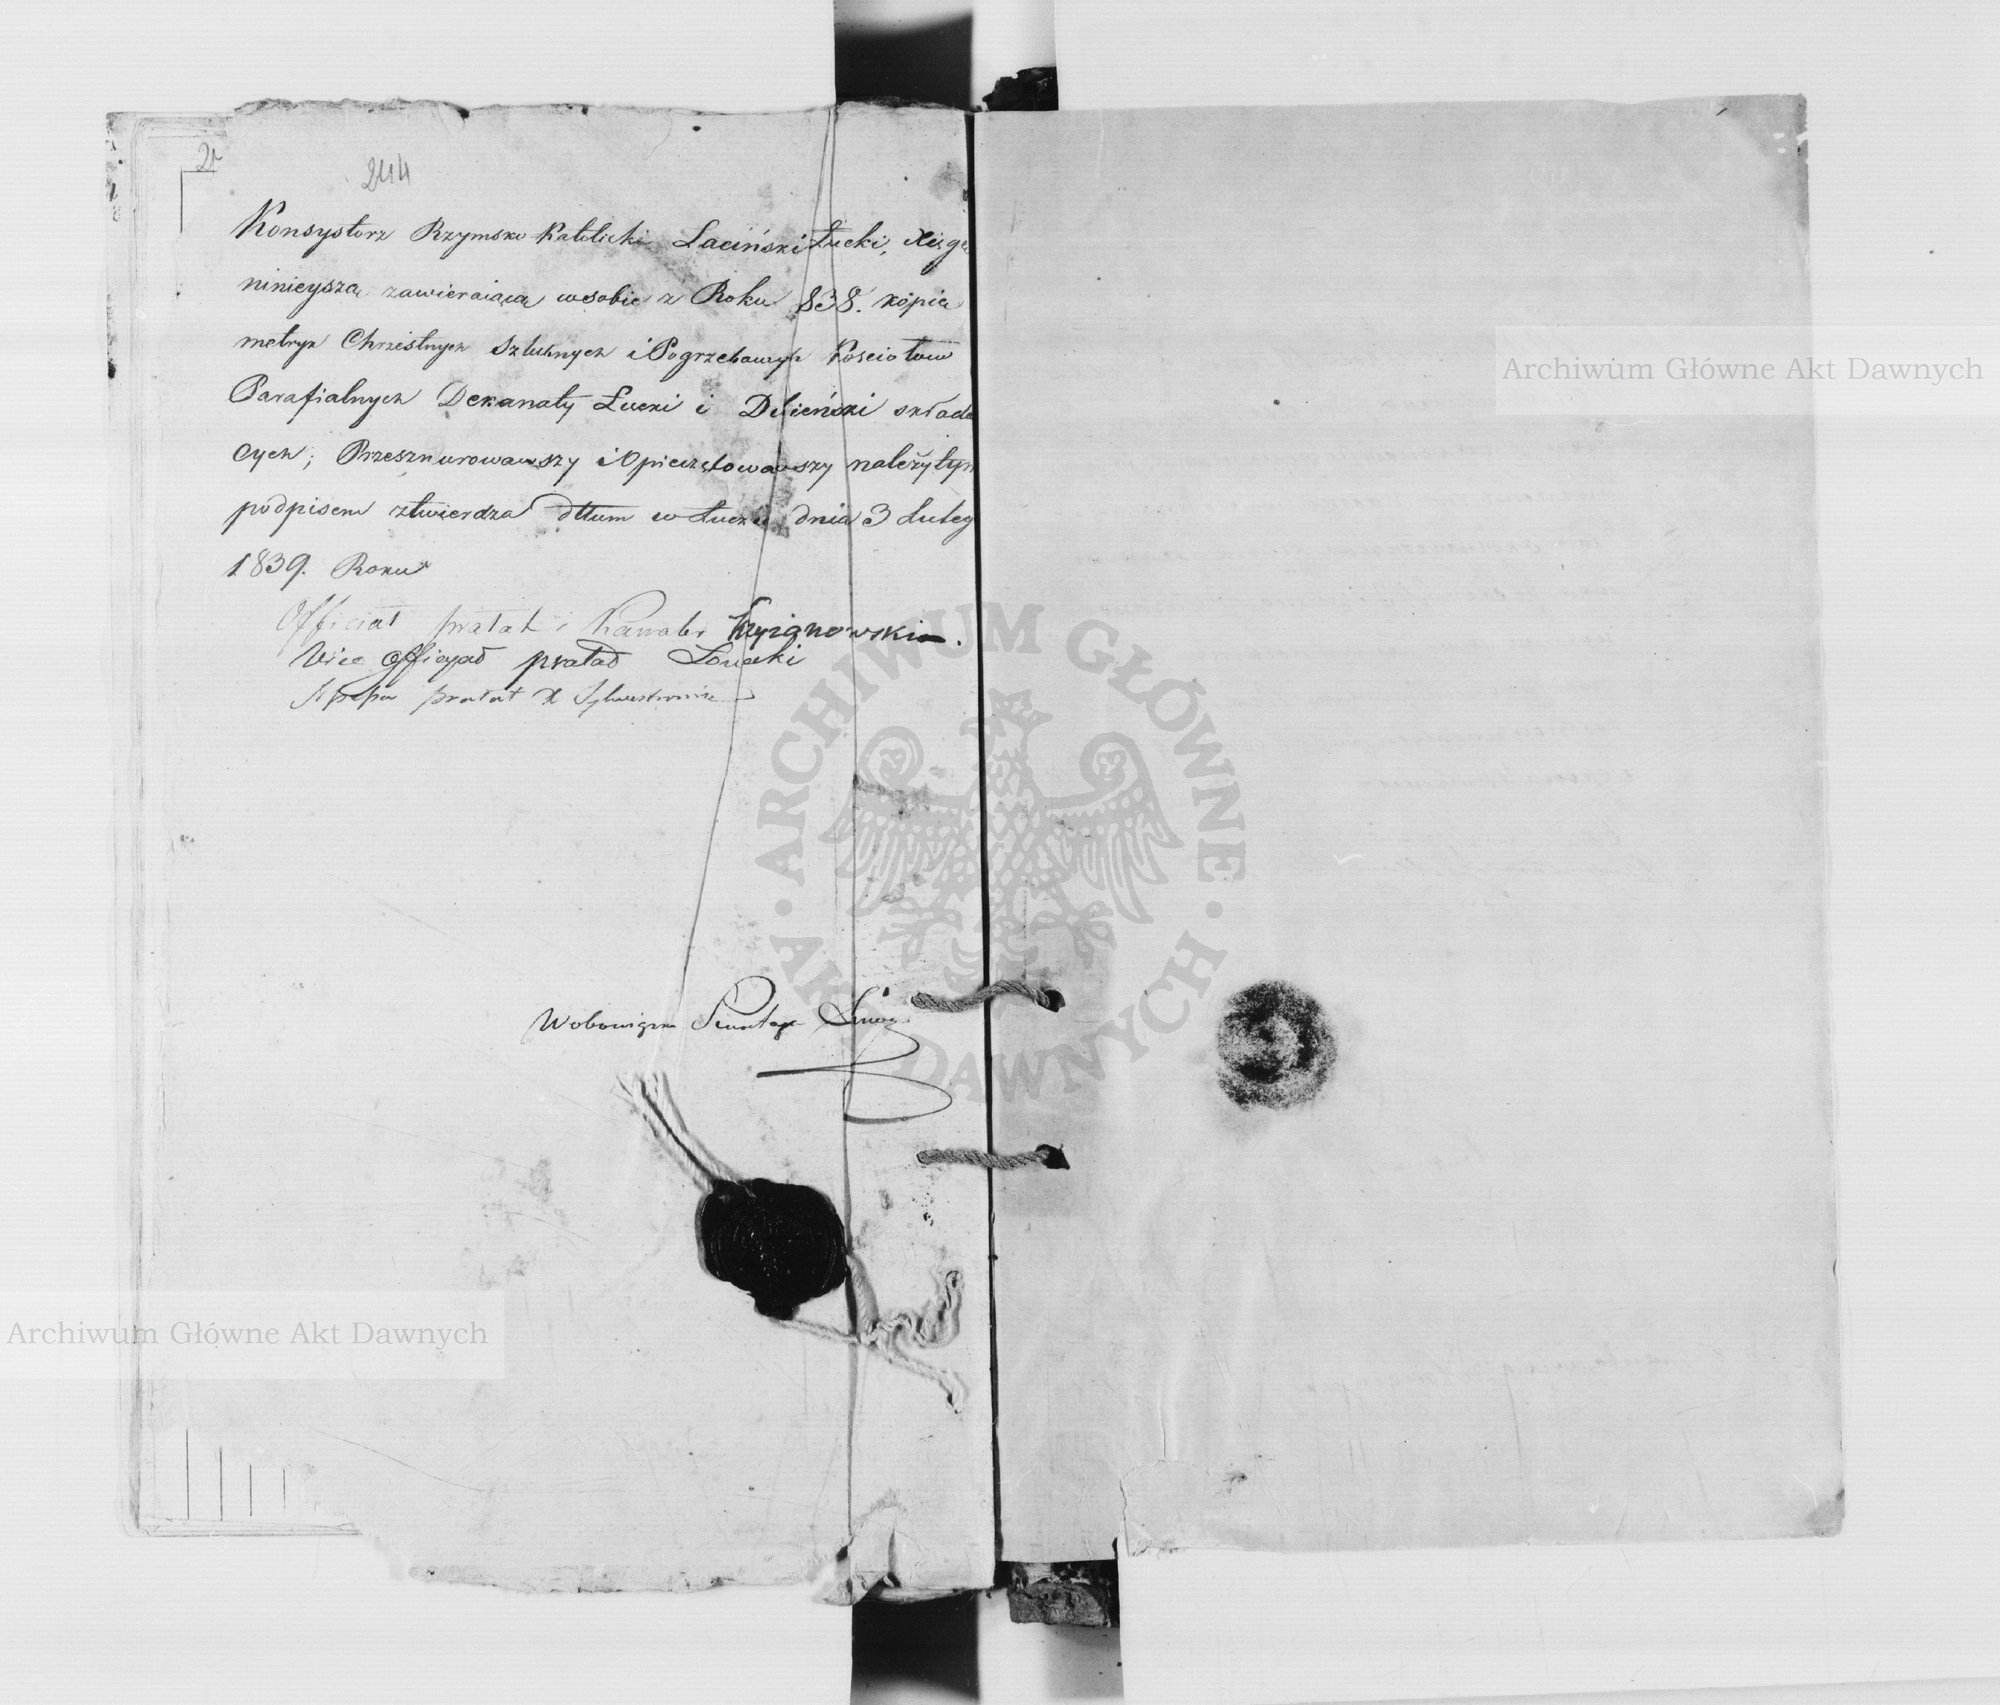 244
Konsystorz Rzymsko Katolicki Łaciński Łucki, Xięgę
ninieyszą zawieraiącą w sobie z Roku 838. kópie
metryk Chrzestnych Szlubnych i Pogrzebowych Kosciołow
Parafialnych Dekanaty Łucki i Dubieński składa
cych; Przesznurowawszy i Opieczętowawszy należytym
podpisem ztwierdza dttum w Łucku dnia 3 Luteg
1839. Roku
Officiał prałat i Kawaler
Vice Officyał prałat
prałat X
Archiwum Główne Akt Dawnych
Archiwum Główne Akt Dawnych
ARCHIWUM GŁÓWNE AKT DAWNYCH